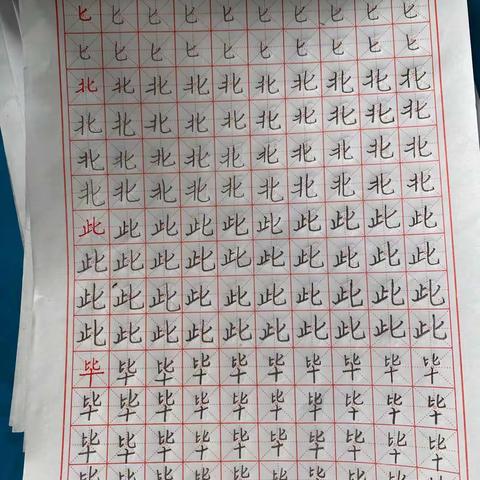 匕匕匕匕匕匕匕匕匕匕
匕匕匕匕匕匕匕匕匕匕
北北北北北北北北北北
北北北北北北北北北北
北北北北北北北北北北
北北北北北北北北北北
此此此此此此此此此此
此此此此此此此此此此
此此此此此此此此此此
此此此此此此此此此此
毕毕毕毕毕毕毕毕毕毕
毕毕毕毕毕毕毕毕毕毕
毕毕毕毕毕毕毕毕毕毕